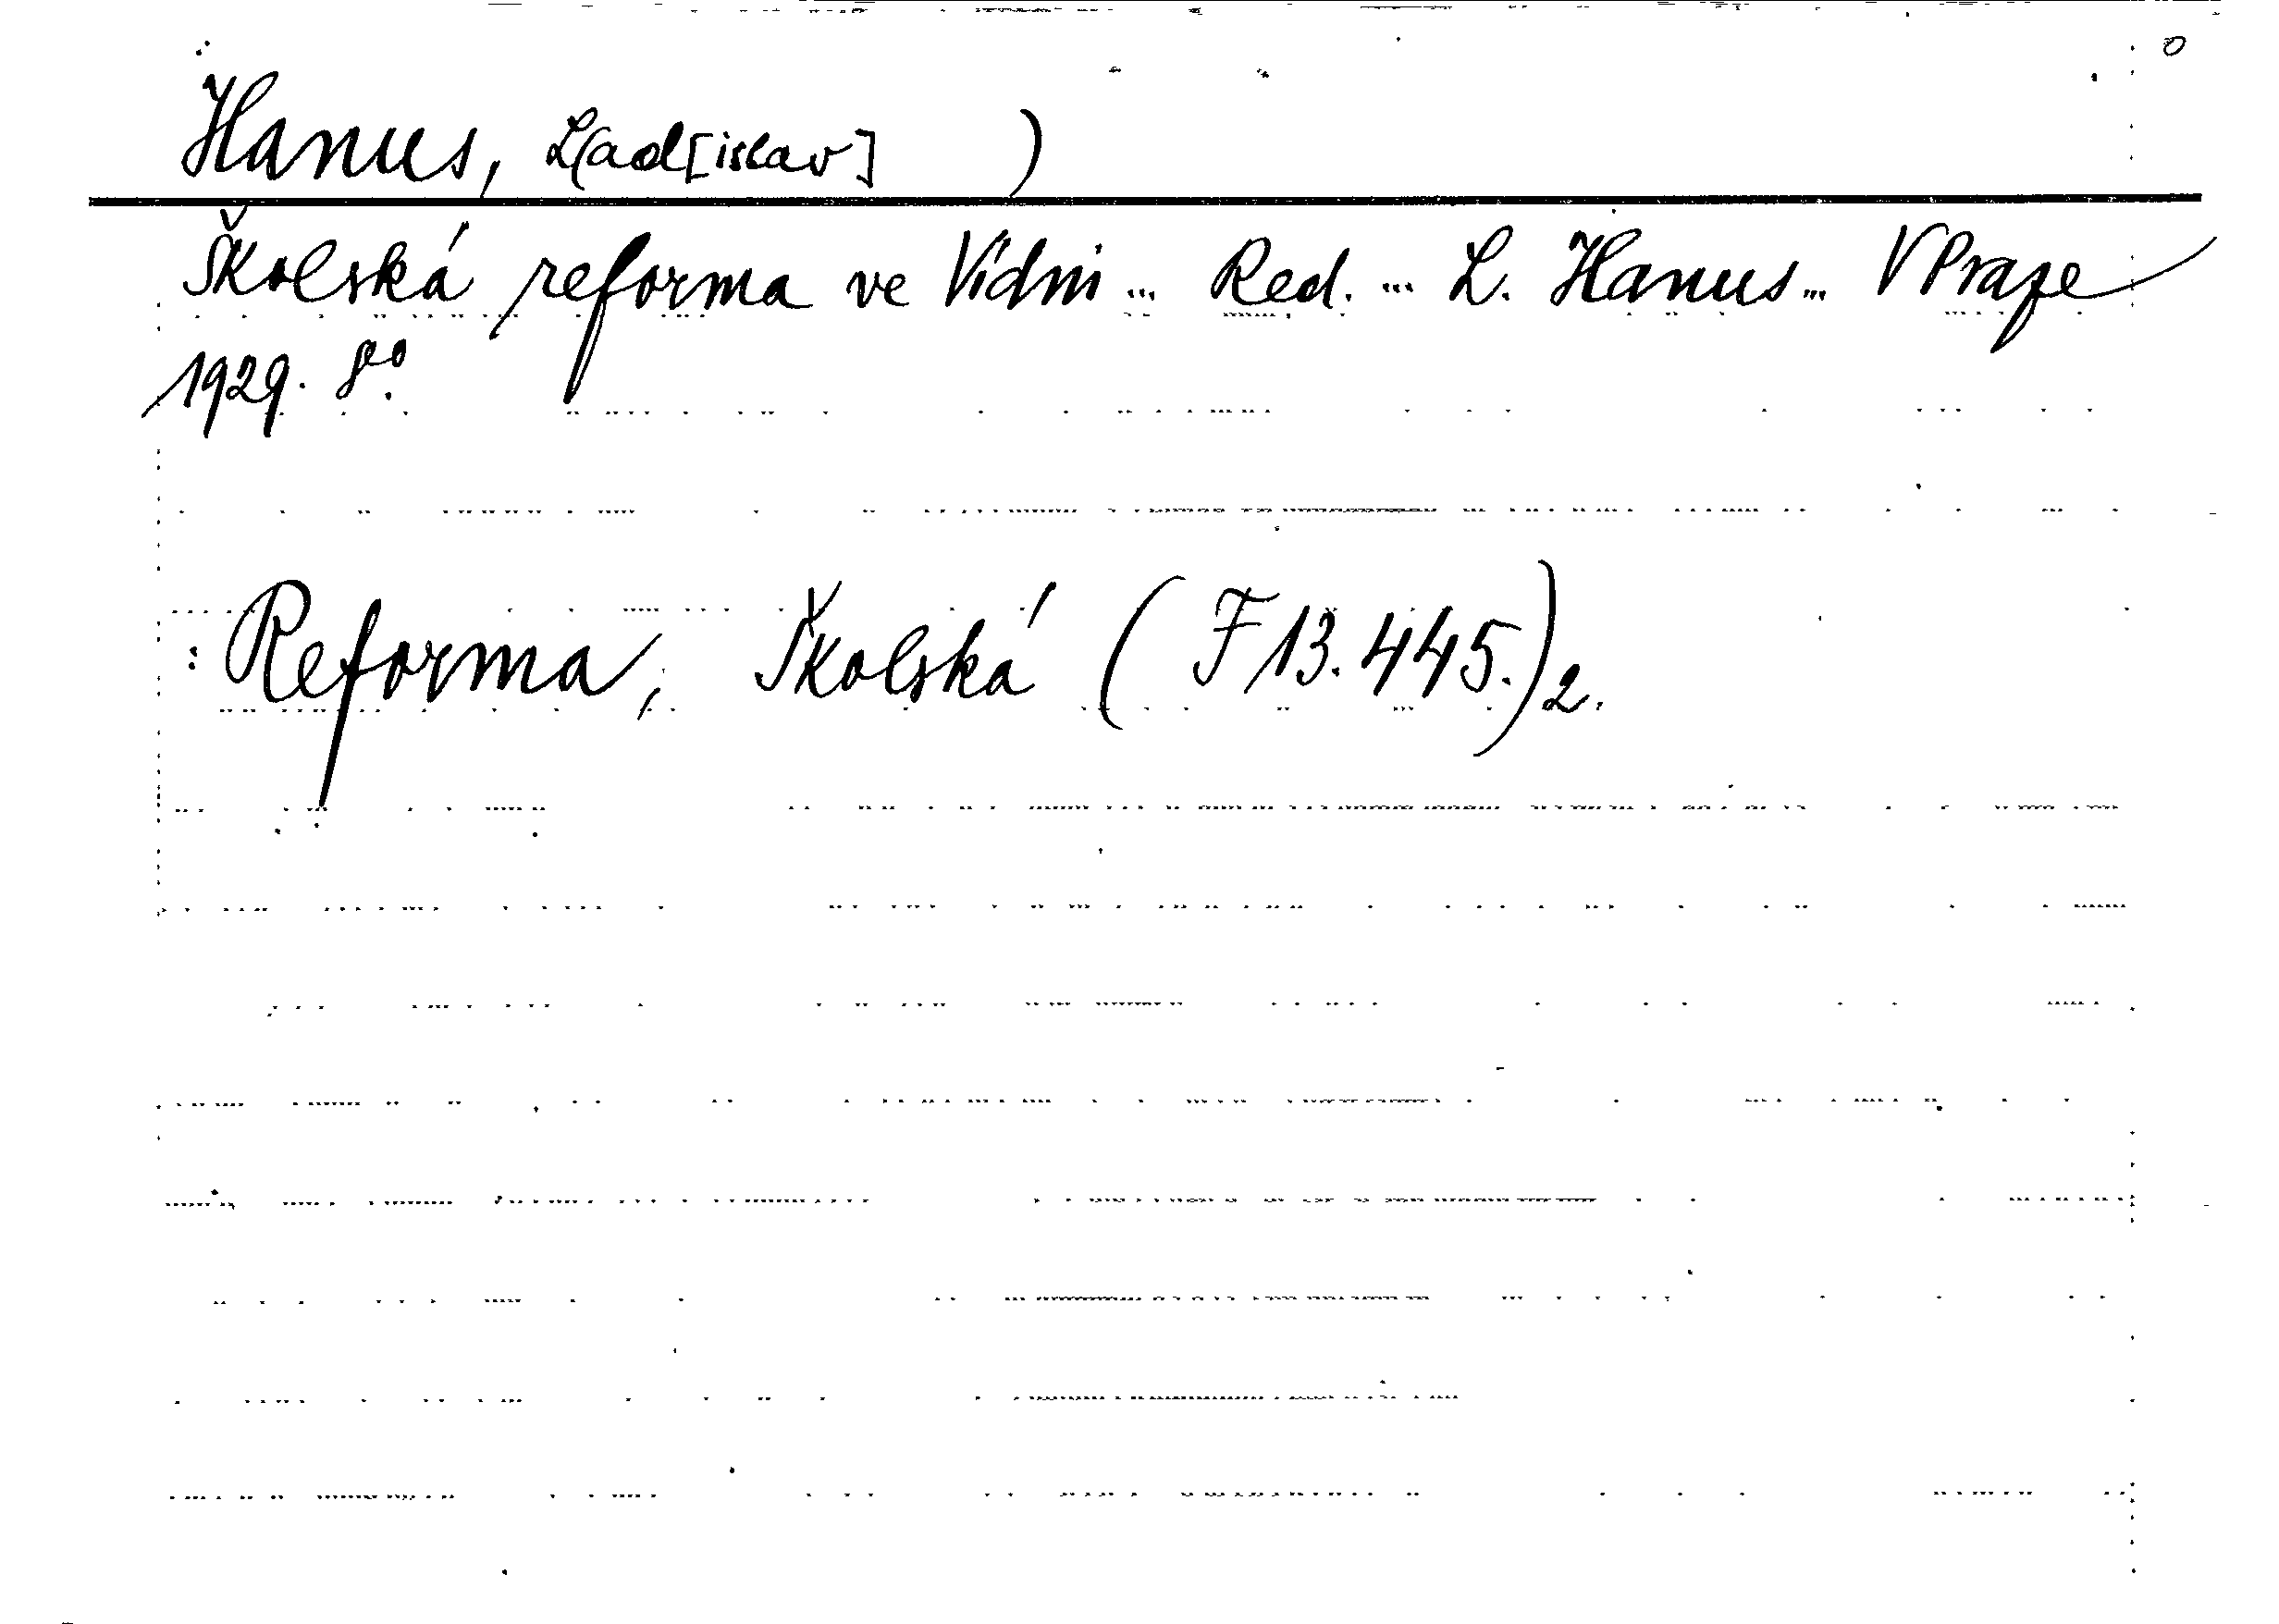 Hanus, L(ad[islav] )
Školská reforma ve Vídni ... Red. ... L. Hanus ... V Praze
1929. 8o.
: Reforma, Školská (F 13.445.)2.